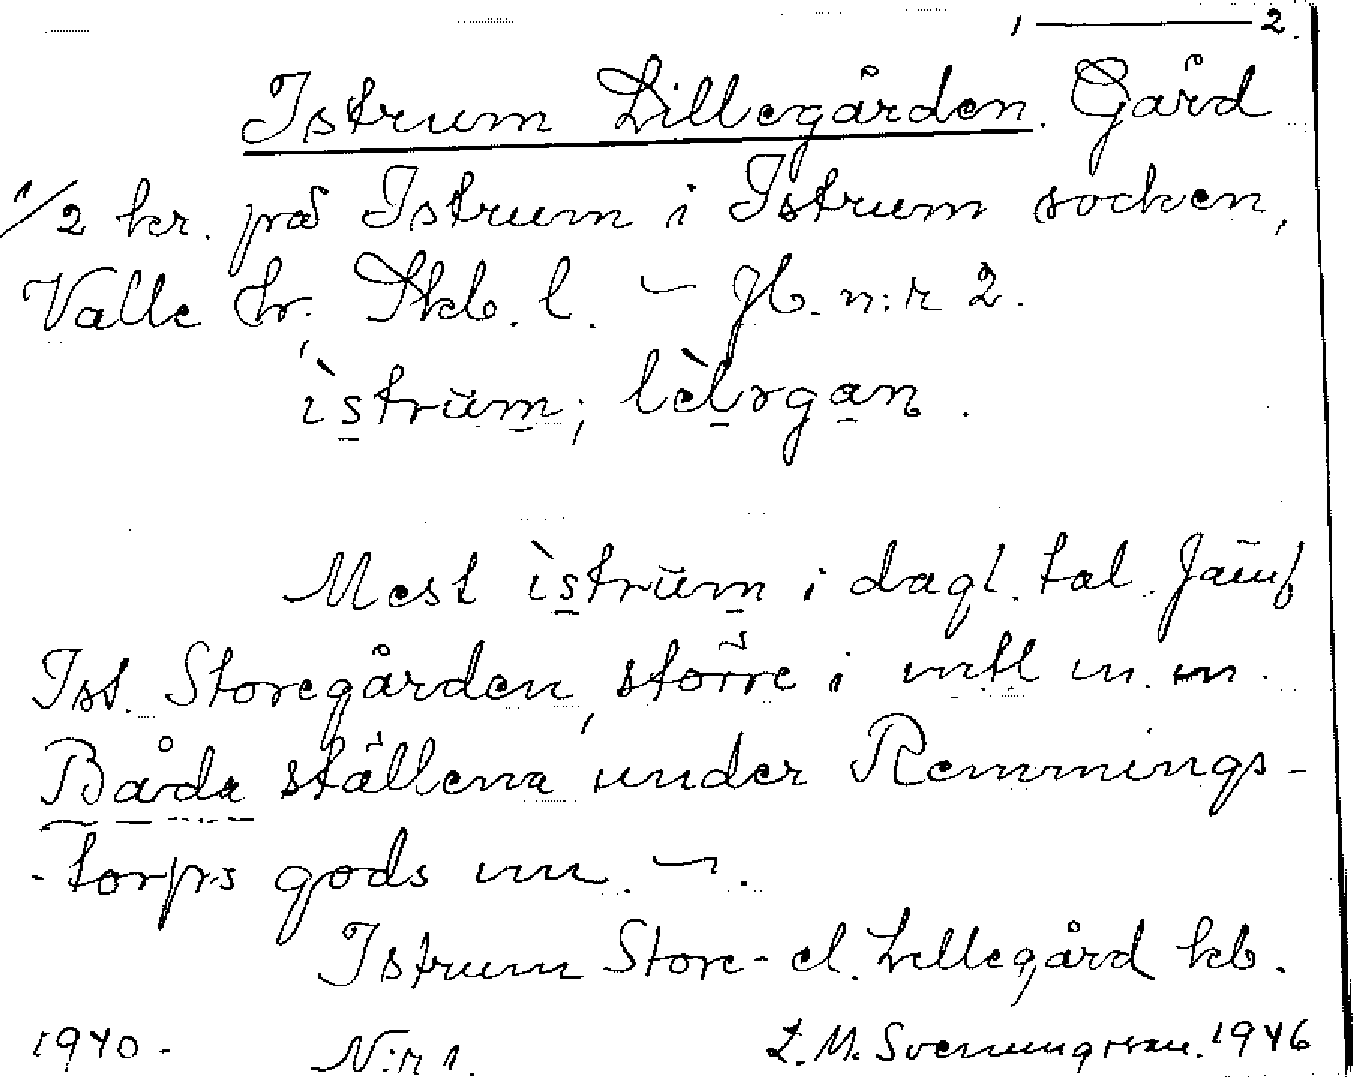 1 — 2.
Istrum Lillegården. Gård
1/2 kr. på Istrum i Istrum socken,
Valle hr, Skb. l. — Jb. n:r 2.
ìstrūm; lèlrgan.
Mest ìstrūm i dagl. tal. Jämf
Ist. Storegården, större i mtl m. m.
Båda ställena under Remmings-
-torps gods nu. —.
Istrum Store- el. Lillegård kb.
1940. N:r 1. L. M. Svenungsson. 1946